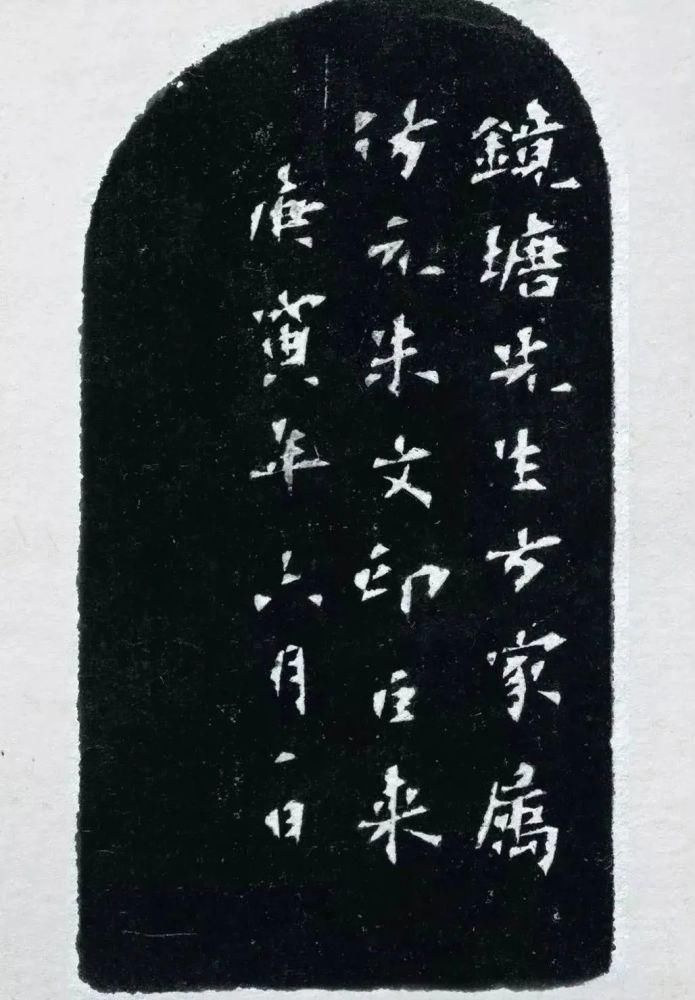 鏡塘先生方家屬
仿元朱文印巨來
庚寅年六月一日